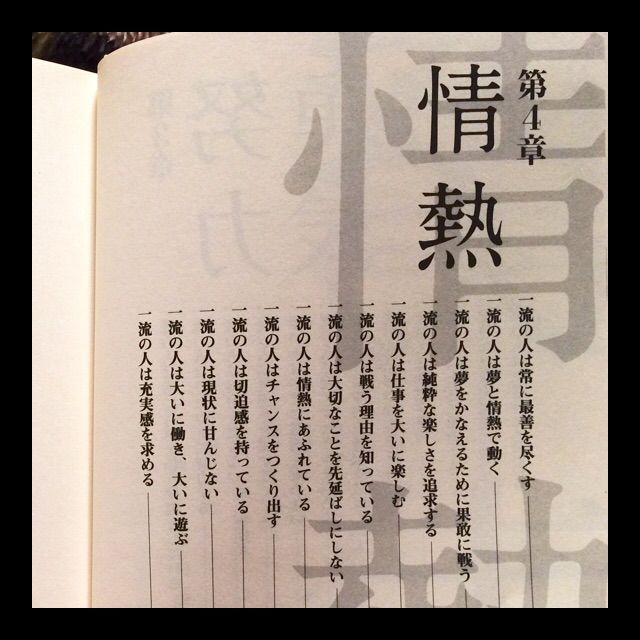 第4章
情熱
一流の人は常に最善を尽くす
一流の人は夢と情熱で動く
一流の人は夢をかなえるために果敢に戦う
一流の人は純粋な楽しさを追求する
一流の人は仕事を大いに楽しむ
一流の人は戦う理由を知っている
一流の人は大切なことを先延ばしにしない
一流の人は情熱にあふれている
一流の人はチャンスをつくり出す
一流の人は切迫感を持っている
一流の人は現状に甘んじない
一流の人は大いに働き、大いに遊ぶ
一流の人は充実感を求める